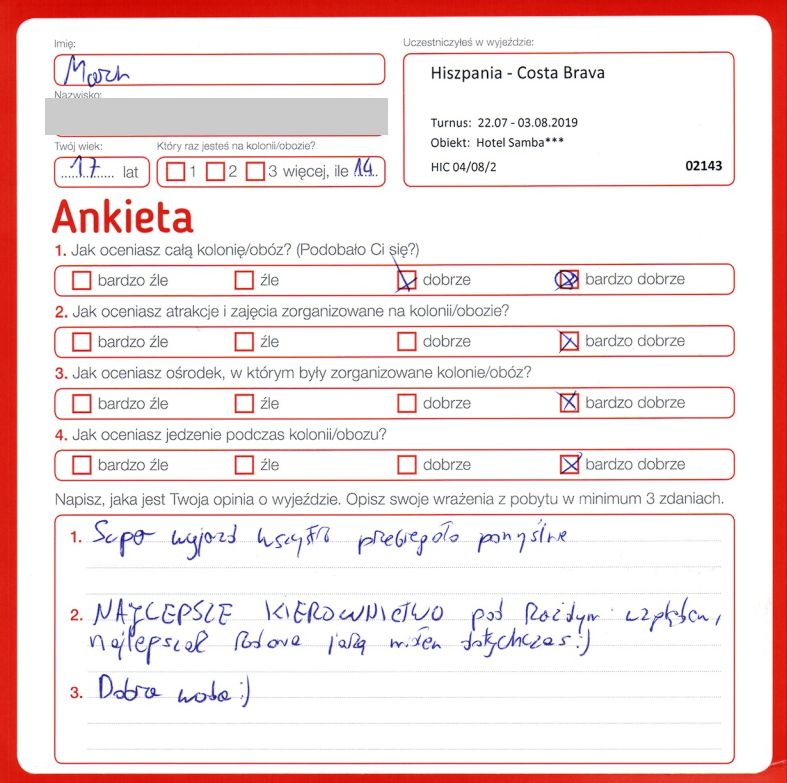 Imię:
Nazwisko:
Twój wiek:
17 lat
Który raz jesteś na kolonii/obozie?
1 2 3 więcej, ile 14
Uczestniczyłeś w wyjeździe:
Hiszpania - Costa Brava
Turnus: 22.07 - 03.08.2019
Obiekt: Hotel Samba***
HIC 04/08/2 02143
Ankieta
1. Jak oceniasz całą kolonię/obóz? (Podobało Ci się?)
bardzo źle źle dobrze bardzo dobrze
2. Jak oceniasz atrakcje i zajęcia zorganizowane na kolonii/obozie?
bardzo źle źle dobrze bardzo dobrze
3. Jak oceniasz ośrodek, w którym były zorganizowane kolonie/obóz?
bardzo źle źle dobrze bardzo dobrze
4. Jak oceniasz jedzenie podczas kolonii/obozu?
bardzo źle źle dobrze bardzo dobrze
Napisz, jaka jest Twoja opinia o wyjeździe. Opisz swoje wrażenia z pobytu w minimum 3 zdaniach.
1. Super wyjazd wszystko przebiegało pomyślnie
2. NAJLEPSZE KIEROWNICTWO pod każdym względem,
najlepsza kadra jaką miałem dotychczas:)
3. Dobra woda:)